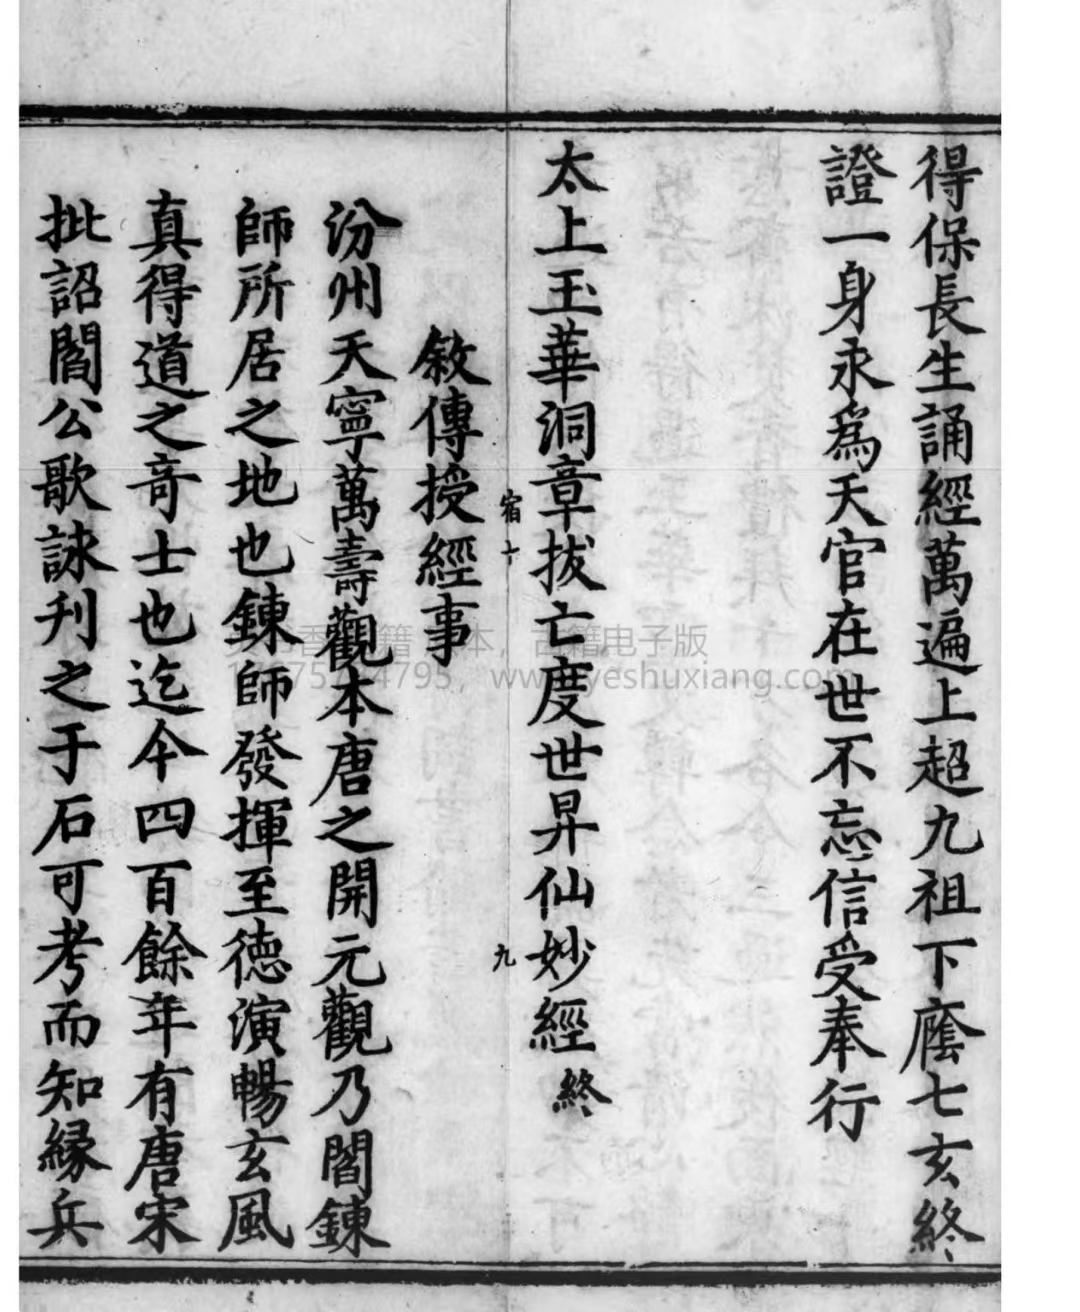 得保長生誦經萬遍上超九祖下廕七玄終
證一身永爲天官在世不忘信受奉行
太上玉華洞章拔亡度世昇仙妙經終
宿十
九
敘傳授經事
汾州天寧萬壽觀本唐之開元觀乃閻鍊
師所居之地也鍊師發揮至德演暢玄風
真得道之竒士也迄今四百餘年有唐宋
批詔閻公歌詠刋之于石可考而知縁兵
古籍电子版
www.yeshuxiang.com